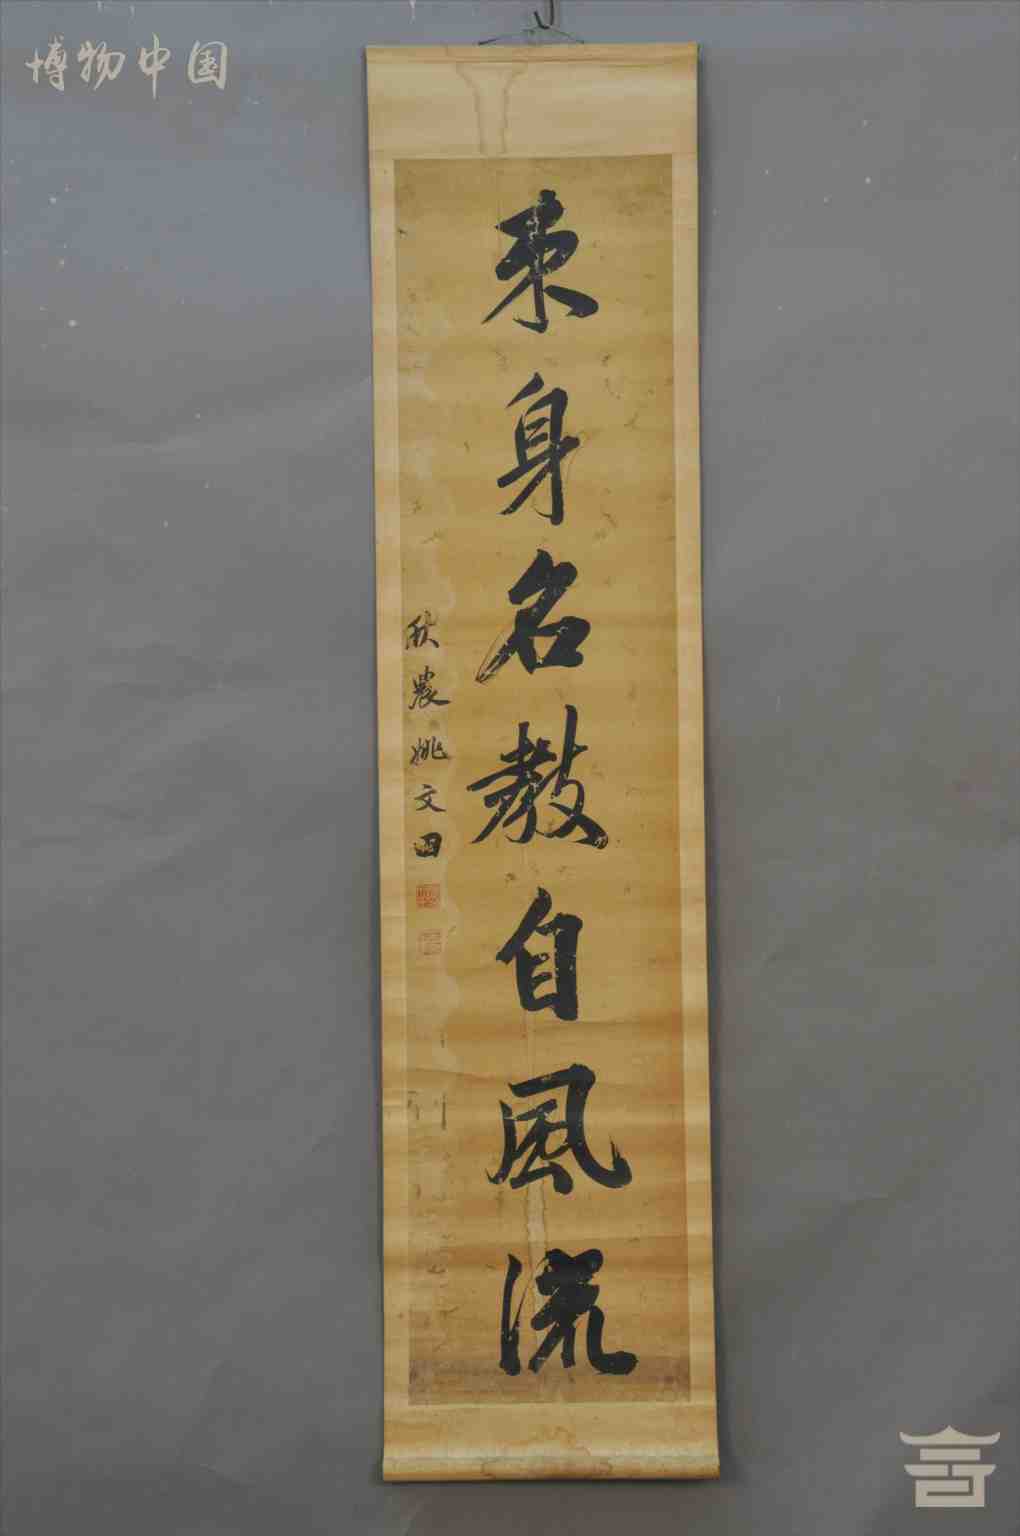 博物中国
束身名教自风流
秋農姚文田